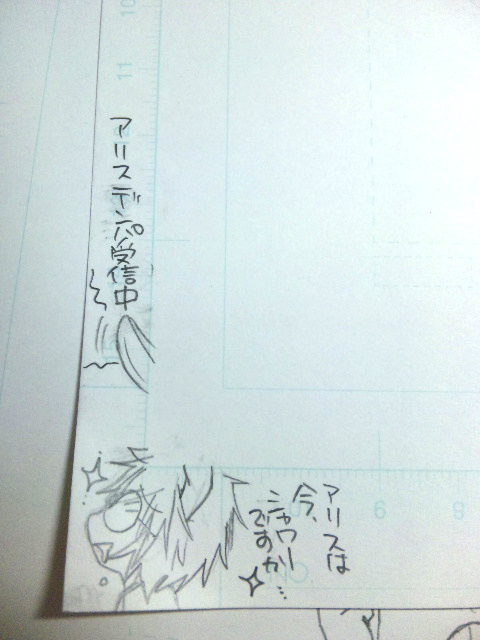 アリスデンパ受信中
アリスは
今、
シャワー
ですか…
10
11
9
8